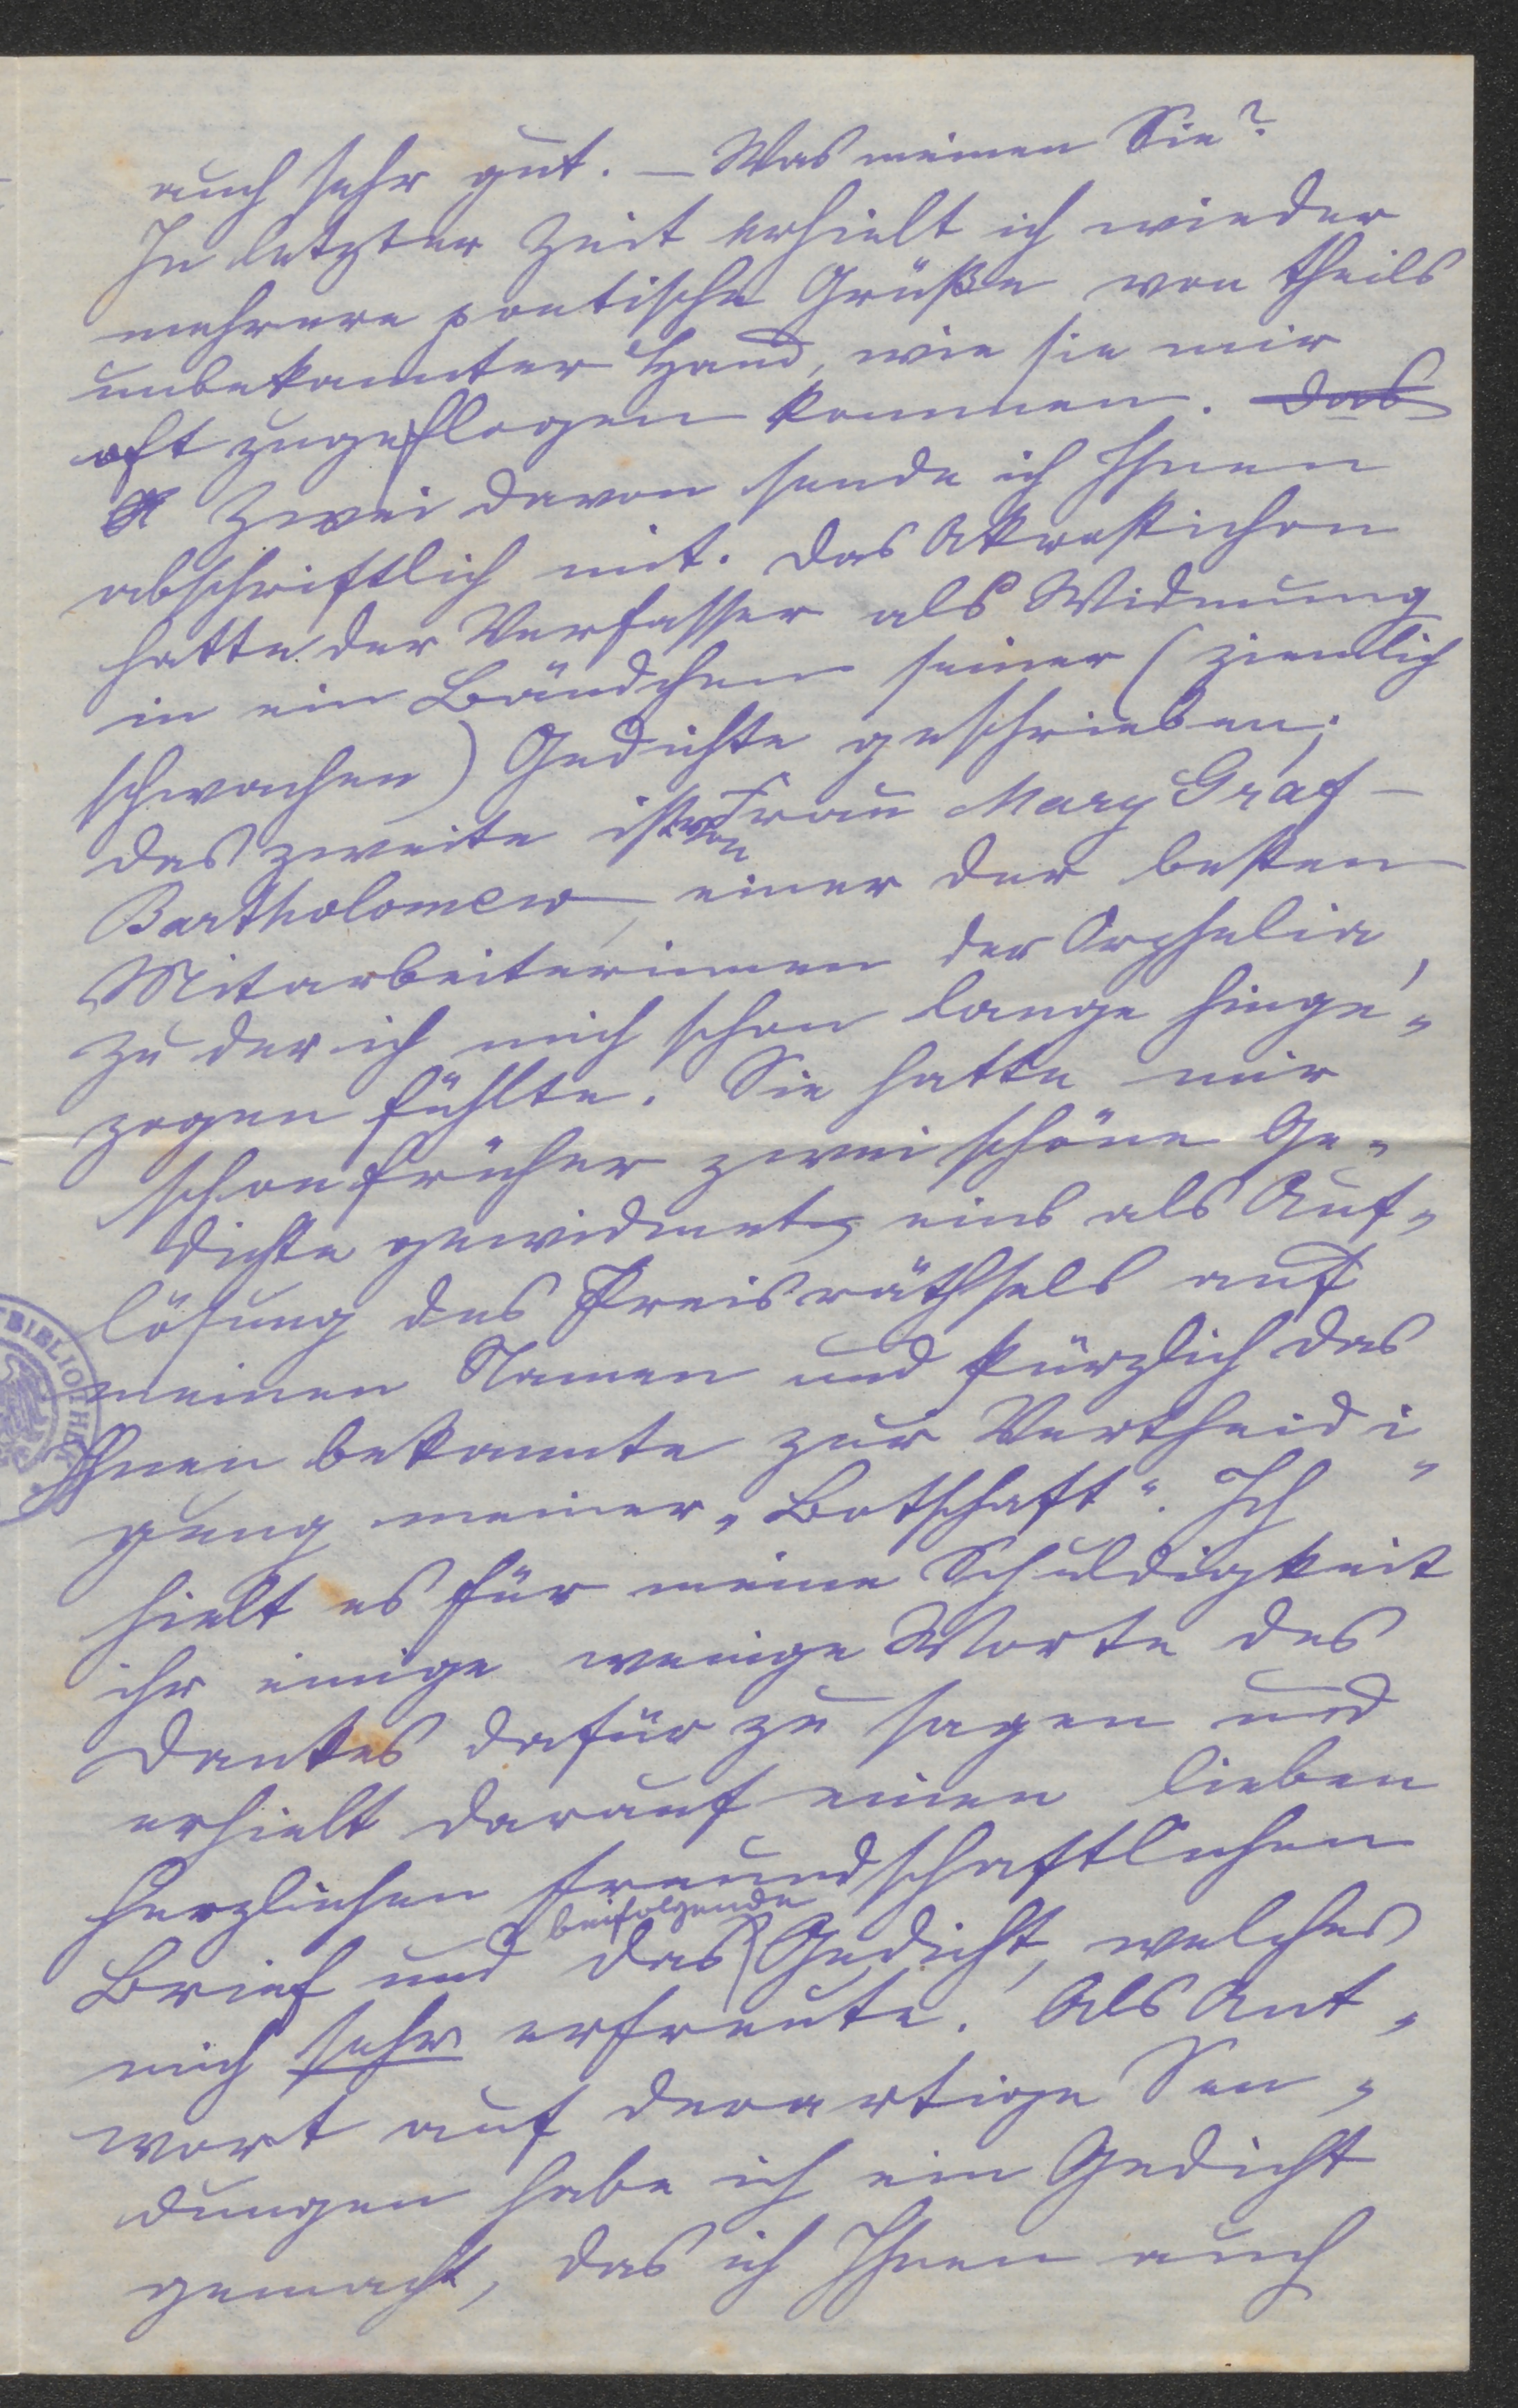 auch sehr gut. — Was meinen Sie?
In letzter Zeit erhielt ich wieder
mehrere poetische Grüße von theils
unbekannter Hand, wie sie mir
oft zugeflogen kommen. Das
Zwei davon sende ich Ihnen
abschriftlich mit. Das Akrostichon
hatte der Verfasser als Widmung
in ein Bändchen seiner (ziemlich
schwachen) Gedichte geschrieben;
das zweite ist von Frau Mary Graf-
Bartholomew, einer der besten
Mitarbeiterinnen der Orphelia,
zu der ich mich schon lange hinge„
zogen fühlte. Sie hatte mir
schon früher zwei schöne Ge„
dichte gewidmet, eins als Auf„
lösung des Preisräthsels auf
meinen Namen und kürzlich das
Ihnen bekannte zur Vertheidi„
gung meiner „Botschaft“. Ich
hielt es für meine Schuldigkeit
ihr einige wenige Worte des
Dankes dafür zu sagen und
erhielt darauf einen lieben
herzlichen freundschaftlichen
beifolgende
Brief und das Gedicht, welches
mich sehr erfreute. Als Ant„
wort auf derartige Sen„
dungen habe ich ein Gedicht
gemacht, das ich Ihnen auch
BIBLIOTHEK